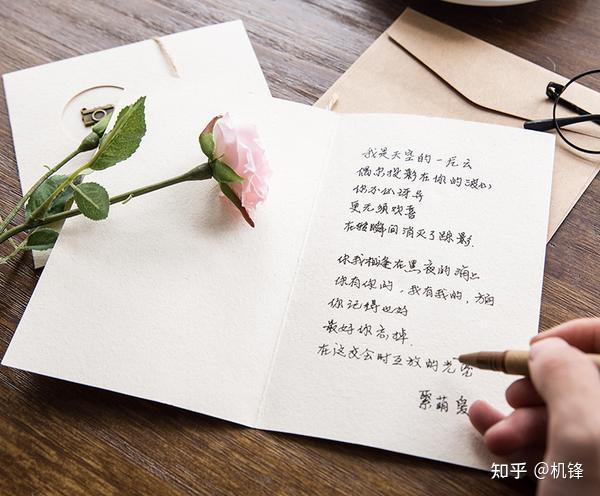 我是天空的一片云
偶尔投影在你的波心
你不必讶异
更无须欢喜
在转瞬间消灭了踪影.
你我相逢在黑夜的海上
你有你的，我有我的，方向
你记得也好
最好你忘掉.
在这交会时互放的光亮
知乎 @机锋